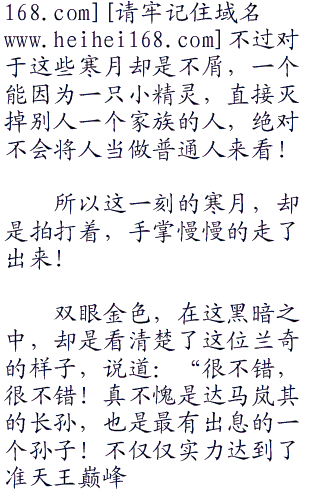 168.com][请牢记住域名
www.heihei168.com]不过对
于这些寒月却是不屑，一个
能因为一只小精灵，直接灭
掉别人一个家族的人，绝对
不会将人当做普通人来看！
所以这一刻的寒月，却
是拍打着，手掌慢慢的走了
出来！
双眼金色，在这黑暗之
中，却是看清楚了这位兰奇
的样子，说道：“很不错，
很不错！真不愧是达马岚其
的长孙，也是最有出息的一
个孙子！不仅仅实力达到了
准天王巅峰